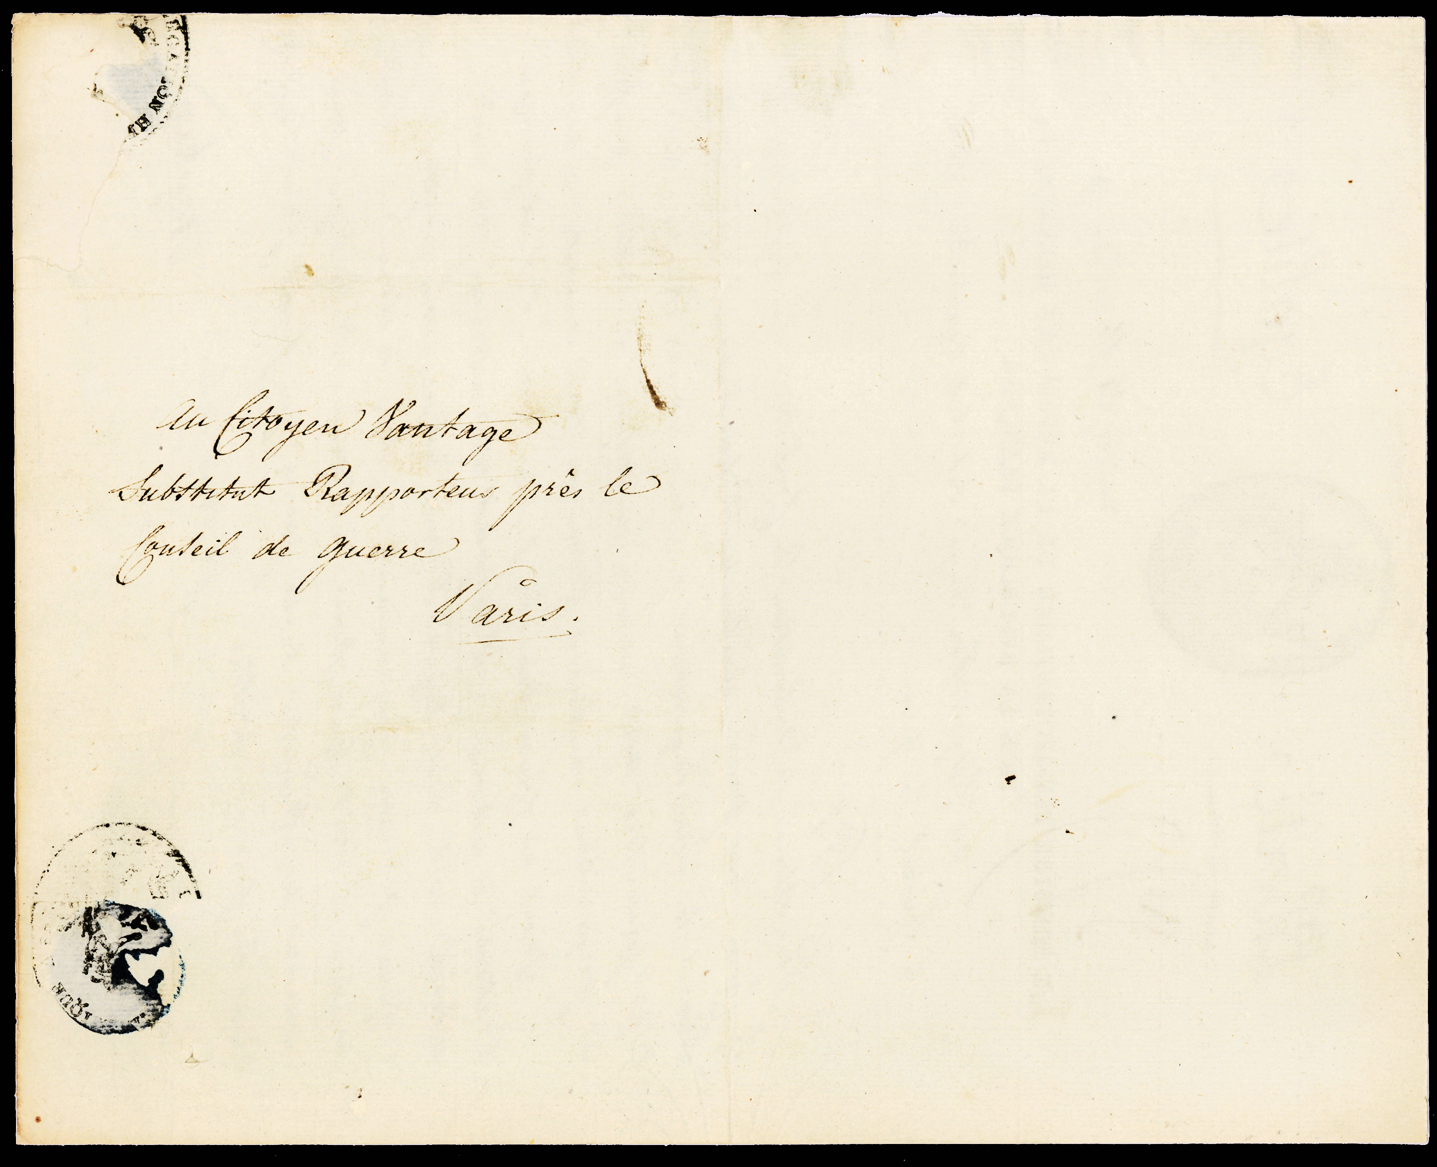 GATION H
Au Citoyen Vantage
Substitut Rapporteur près le
Conseil de guerre
Paris.